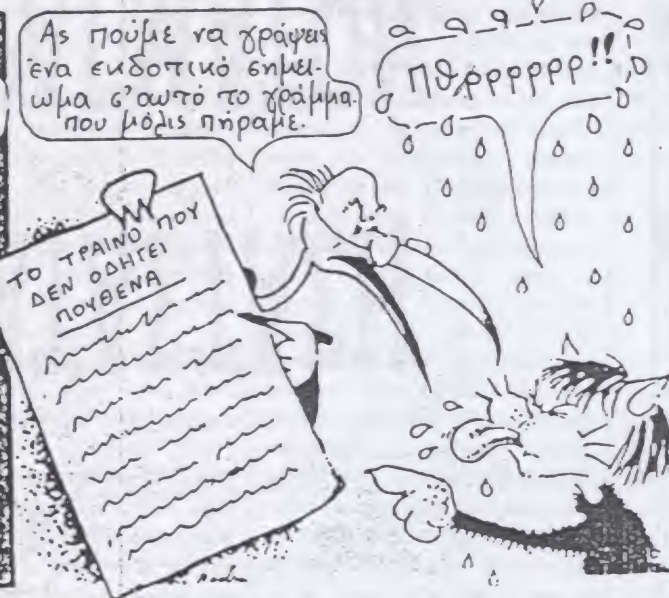 Ας πούμε να γράψεις
ένα εκδοτικό σημεί-
ωμα σ'αυτό το γράμμα
που μόλις πήραμε.
Πθρρρρρρρ!!
ΤΟ ΤΡΑΙΝΟ ΠΟΥ
ΔΕΝ ΟΔΗΓΕΙ
ΠΟΥΘΕΝΑ